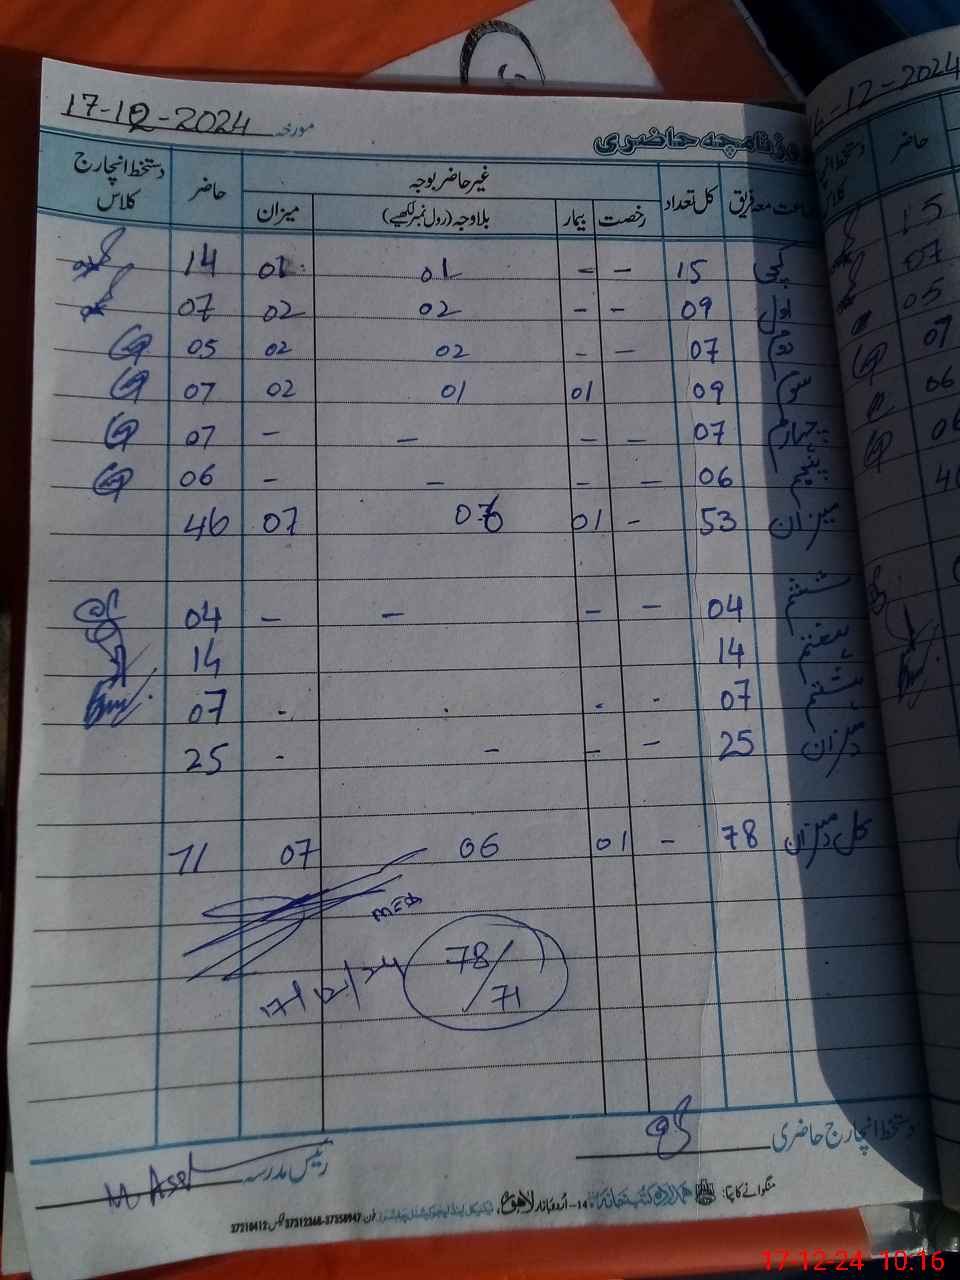 17-12-2024 مورخہ
روزنامچہ حاضری
جماعت معہ فریق کل تعداد غیر حاضر بوجہ حاضر دستخط انچارج کلاس
رخصت بیمار بلاوجہ (رول نمبر لکھیے) میزان
کچی 15 - - 01 01 14
اول 09 - - 02 02 07
دوم 07 - - 02 02 05
سوم 09 01 01 02 07
چہارم 07 - - - - 07
پنجم 06 - - - - 06
میزان 53 - 01 06 07 46
ششم 04 - - - - 04
ہفتم 14 14
ہشتم 07 - - - - 07
میزان 25 - - - - 25
کل میزان 78 - 01 06 07 71
78/71
17/12/24
دستخط انچارج حاضری
رئیس مدرسہ M Asef
منگوانے کا پتہ: ہمدرد کتب خانہ 14-اُردو بازار لاہور
فون 37350947-37312368 فیکس 37210412
12-2024
حاضر
15
07
05
07
06
06
17-12-24 10:16